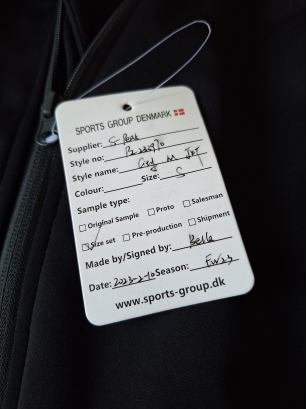 SPORTS GROUP DENMARK
Supplier:
Style no:
Style name: M JKT
Colour: Size: S
Sample type:
Original Sample Proto Salesman
Size set Pre-production Shipment
Made by/Signed by:
Date: 2023-2-10 Season: FW23
www.sports-group.dk